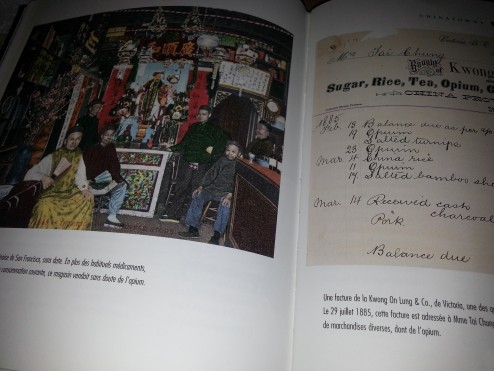 和順廣
de San Francisco, sans date. En plus des habituels médicaments,
consommation courante, ce magasin vendait sans doute de l'opium.
CHINATOWN
Tai Chung
Bought of Kwong
Sugar, Rice, Tea, Opium,
CHINA
1885
Feb 13 Balance due as per
19 Opium
Salted turnips
23 Opium
Mar. 4 China rice
11 Opium
17 Salted bamboo
Mar. 14 Received cash
charcoal
Pork
Balance due
Une facture de la Kwong On Lung & Co., de Victoria, une des
Le 29 juillet 1885, cette facture est adressée à Mme Tai Chung
de marchandises diverses, dont de l'opium.